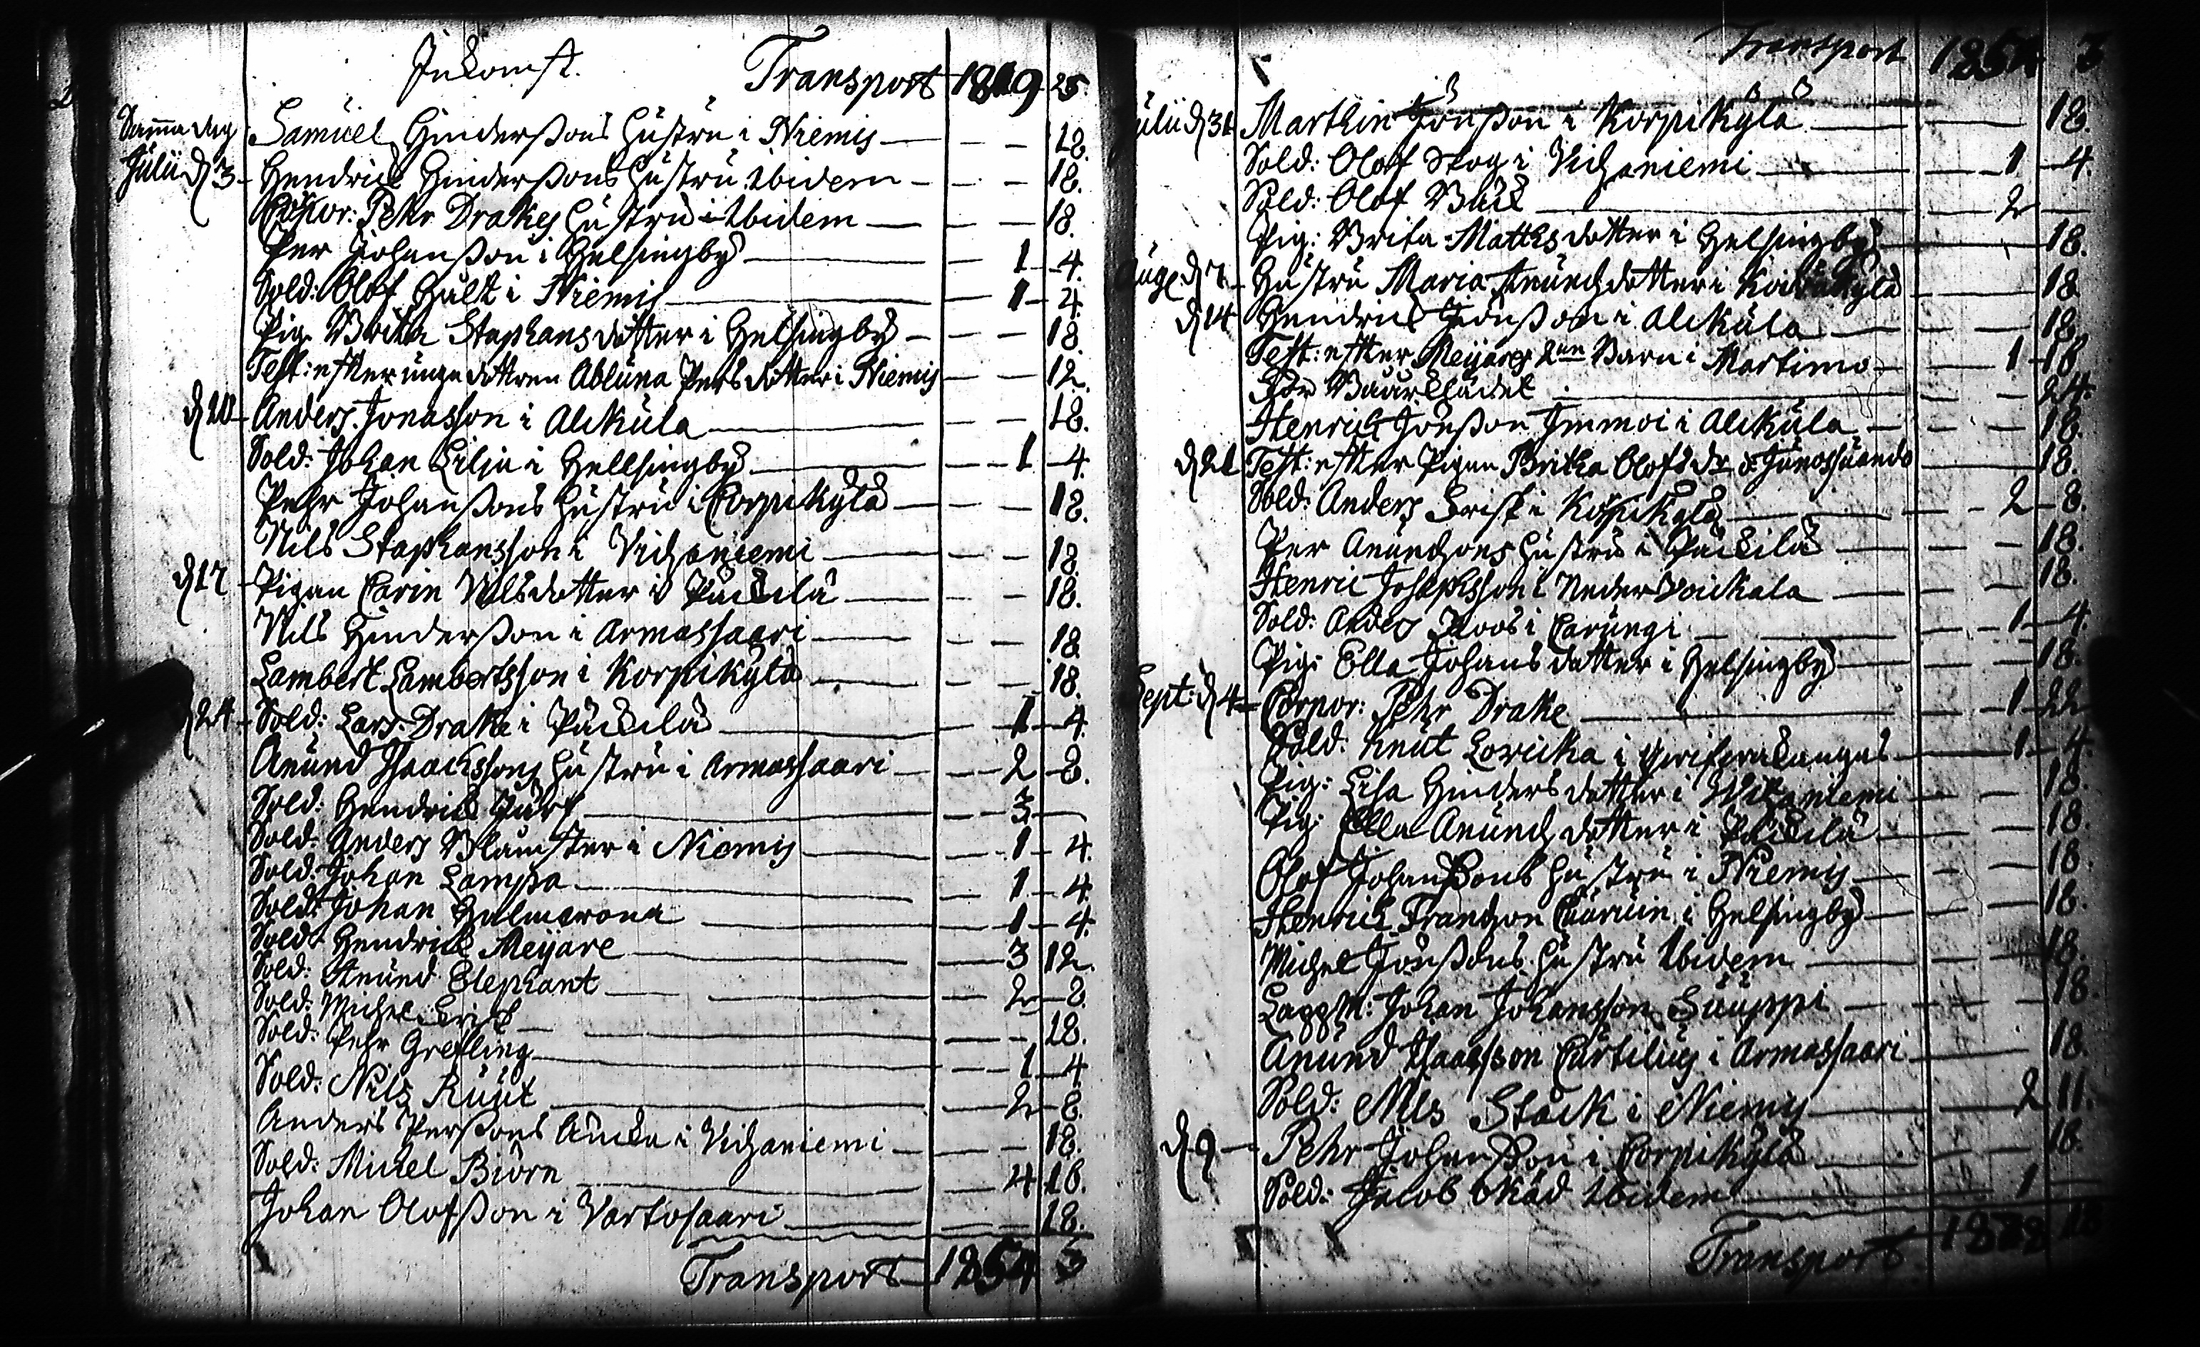 Inkomst. Transport 1819 25
Samma dag Samuel Hinderßons hustru i Niemis — 18.
Julii d 3 Hendrich Hinderßons hustru ibidem — 18.
Corpor: Pehr Drakes hustru ibidem — 18.
Per Johanßon i Helsingby — 1 — 4.
Sold: Olof Hult i Niemis — 1 — 4.
Pig. Brita Staphansdotter i Helsingby — 18.
Test: efter unga dottren Abluna Persdotter i Niemis — 12.
d 10 Anders Jonasson i Alckula — 18.
Sold: Johan Lilja i Hellsingby — 1 — 4.
Pehr Johanßons hustru i Corpikylä — 18.
Nils Staphansson i Vichaniemi — 18.
d 17 Pigan Carin Nilsdotter i Päckilä — 18.
Nils Hinderßon i Armassaari — 18
Lambert Lambertsson i Korpikylä — 18.
d 24 Sold: Lars Drake i Päckilä — 1 — 4.
Anund Isaackssons hustru i Armassaari — 2 — 8.
Sold: Hendrich — 3 —
Sold: Anders Blamster i Niemis — 1 — 4.
Sold: Johan Lampa — 1 — 4.
Sold: Johan — 1 — 4.
Sold: Hendrich Meijare — 3 12.
Sold: Anund Elephant — 2 — 8.
Sold: Michel — 18.
Sold: Pehr Grefling — 1 — 4
Sold: Nils Kuut — 2 — 8
Anders Perßons Änka i Vichaniemi — 18.
Sold: Michel Biörn — 4 18.
Johan Olofßon i Vartosaari — 18.
Transport 1854 3
Transport 1854 3
Julii d 31 Marthin Jönßon i Korpikylä — 18.
Sold: Olof Skog i Vichaniemi — 1 — 4.
Sold: Olof Bäck — 2 —
Pig: Brita Matthsdotter i Helsingby — 18.
Aug d 7 Hustru Maria Anundsdotter i — 18
d 14 Hendrich Jönßon i Alckula — 18.
Test: efter Meijares 2ne Barn i Martimo — 1 — 18
För Baarklädet — 24.
Henrich Jönßon Immoi i Alckula — 18.
d 21 Test: efter Pigan Britha Olofsdr i Junossuando — 18.
Sold: Anders Frisk i Korpikylä — 2 — 8.
Per Anundsons hustru i Päckilä — 18.
Henric Josephsson i Neder Voickala — 18.
Sold: Anders Roos i Carungi — 1 — 4.
Pig: Ella Johansdotter i Helsingby — 18.
Sept: d 4 Corpor: Pehr Drake — 1 — 22
Sold: Knut Lovicka i — 1 — 4.
Pig: Lisa Hindersdotter i Wichaniemi — 18.
Pig: Ella Anundsdotter i Päckilä — 18.
Olof Johanßons hustru i Niemis — 18.
Henrich Frantzon i Helsingby — 18.
Michel Jönßons hustru ibidem — 18.
Lappm: Johan Johansson — 18.
Anund Isaacsson Curtelius i Armassaari — 18.
Sold: Nils Stäck i Niemis — 2 11.
d 9 Pehr Johanßon i Corpikylä — 18.
Sold: Jacob ibidem — 1 —
Transport 1878 18